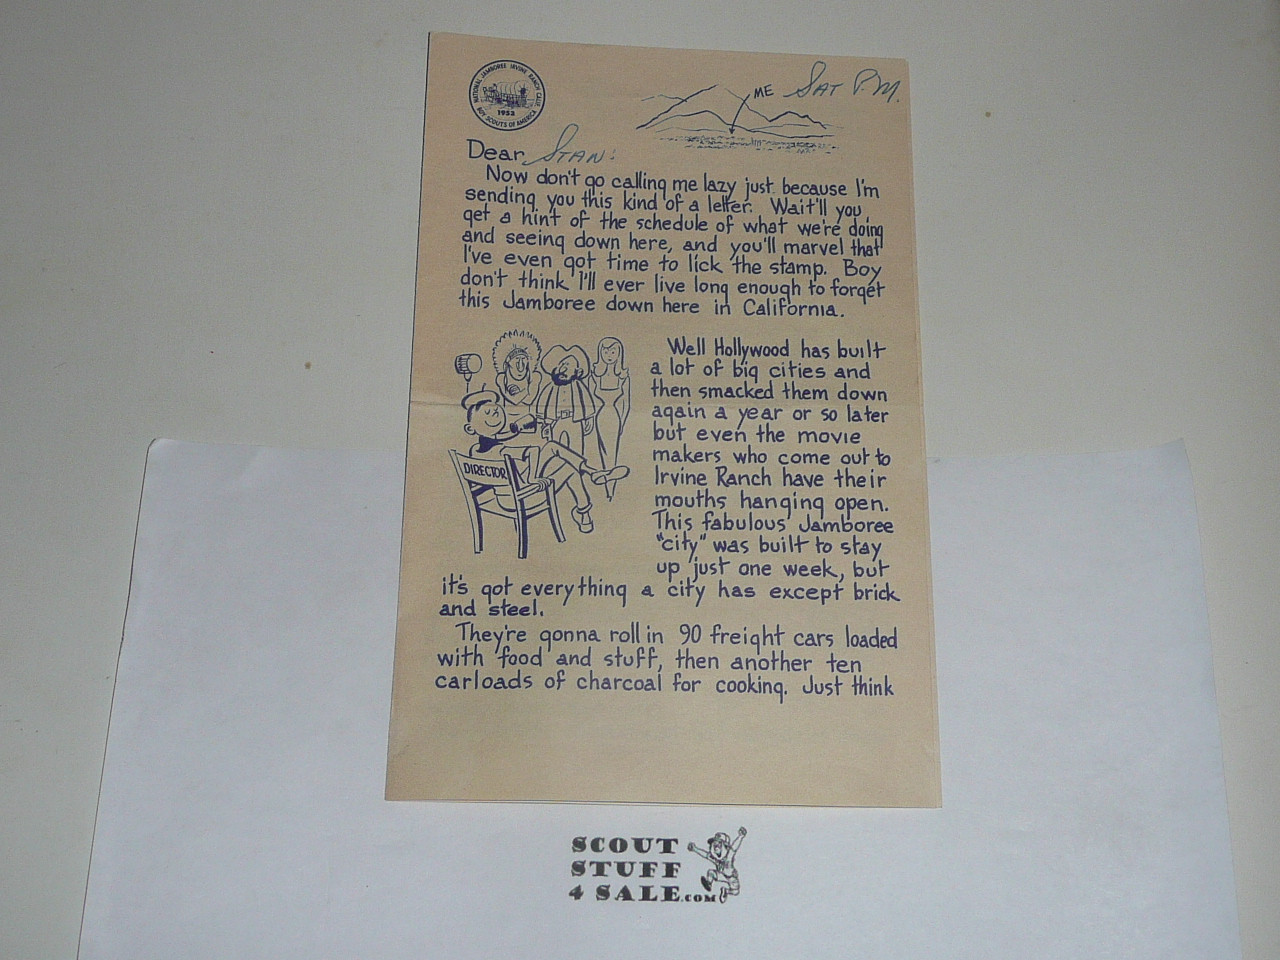 NATIONAL JAMBOREE IRVINE RANCH CALIF.
1953
BOY SCOUTS OF AMERICA
ME
SAT P.M.
Dear STAN:
Now don't go calling me lazy just because I'm
sending you this kind of a letter. Wait'll you
get a hint of the schedule of what we're doing
and seeing down here, and you'll marvel that
I've even got time to lick the stamp. Boy
don't think I'll ever live long enough to forget
this Jamboree down here in California.
DIRECTOR
Well Hollywood has built
a lot of big cities and
then smacked them down
again a year or so later
but even the movie
makers who come out to
Irvine Ranch have their
mouths hanging open.
This fabulous Jamboree
"city" was built to stay
up just one week, but
it's got everything a city has except brick
and steel.
They're gonna roll in 90 freight cars loaded
with food and stuff, then another ten
carloads of charcoal for cooking. Just think
SCOUT
STUFF
4 SALE.COM